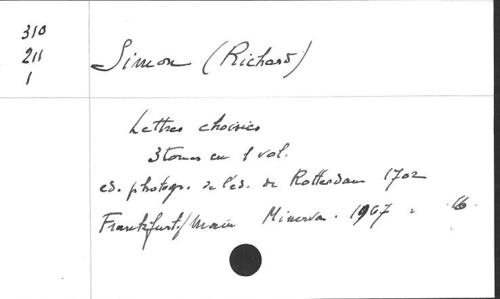 310
211
1
Simon (Richard)
Lettres choisies
3 tomes en 1 vol.
ed. photogr. de l'ed. de Rotterdam 1702
Frankfurt/Main Minerva. 1967 16.